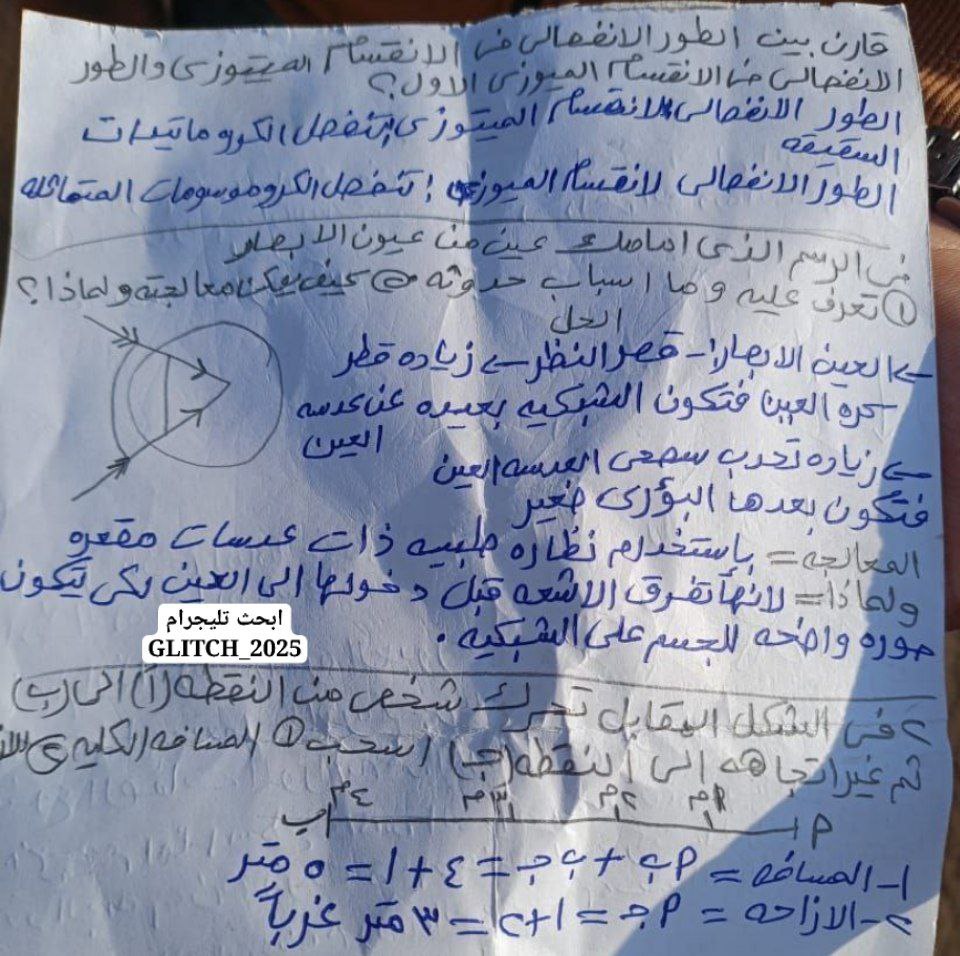 قارن بين الطور الانفصالى فى الانقسام الميتوزى والطور
الانفصالى فى الانقسام الميوزى الاول؟
الطور الانفصالى لانقسام الميتوزى: تنفصل الكروماتيدات
الشقيقه
الطور الانفصالى لانقسام الميوزى: تنفصل الكروموسومات المتماثله
فى الرسم الذى امامك عين من عيون الابصار
① تعرف عليه وما اسباب حدوثه ② كيف يمكن معالجته ولماذا؟
الحل
العين الابصار:- قصر النظر ← زياده قطر
كره العين فتكون الشبكيه بعيده عن عدسه
العين
← زياده تحدب سطحى العدسه العين
فتكون بعدها البؤرى صغير
المعالجه = بإستخدام نظاره طبيه ذات عدسات مقعره
ولماذا = لانها تفرق الاشعه قبل دخولها الى العين لكى يتكون
صوره واضحه للجسم على الشبكيه.
ابحث تليجرام
GLITCH_2025
٢ فى الشكل المقابل تحرك شخص من النقطه (أ) الى (ب)
ثم غير اتجاهه الى النقطه (جـ) احسب ① المسافه الكليه ②
٤م ٣م ٢م ١م
ب أ
١- المسافه = أب + ب جـ = ٤ + ١ = ٥ متر
٢- الازاحه = أجـ = ١+٢ = ٣ متر غرباً